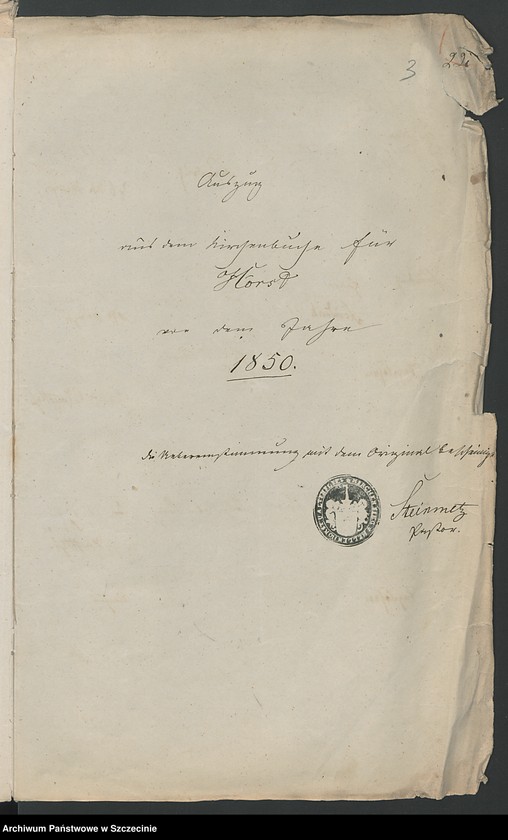 3
22
Auszug
aus dem Kirchenbuche für
Horst
von dem Jahre
1850.
die Uebereinstimmung mit dem Original bescheinigt
Steinmetz
Pastor.
Archiwum Państwowe w Szczecinie